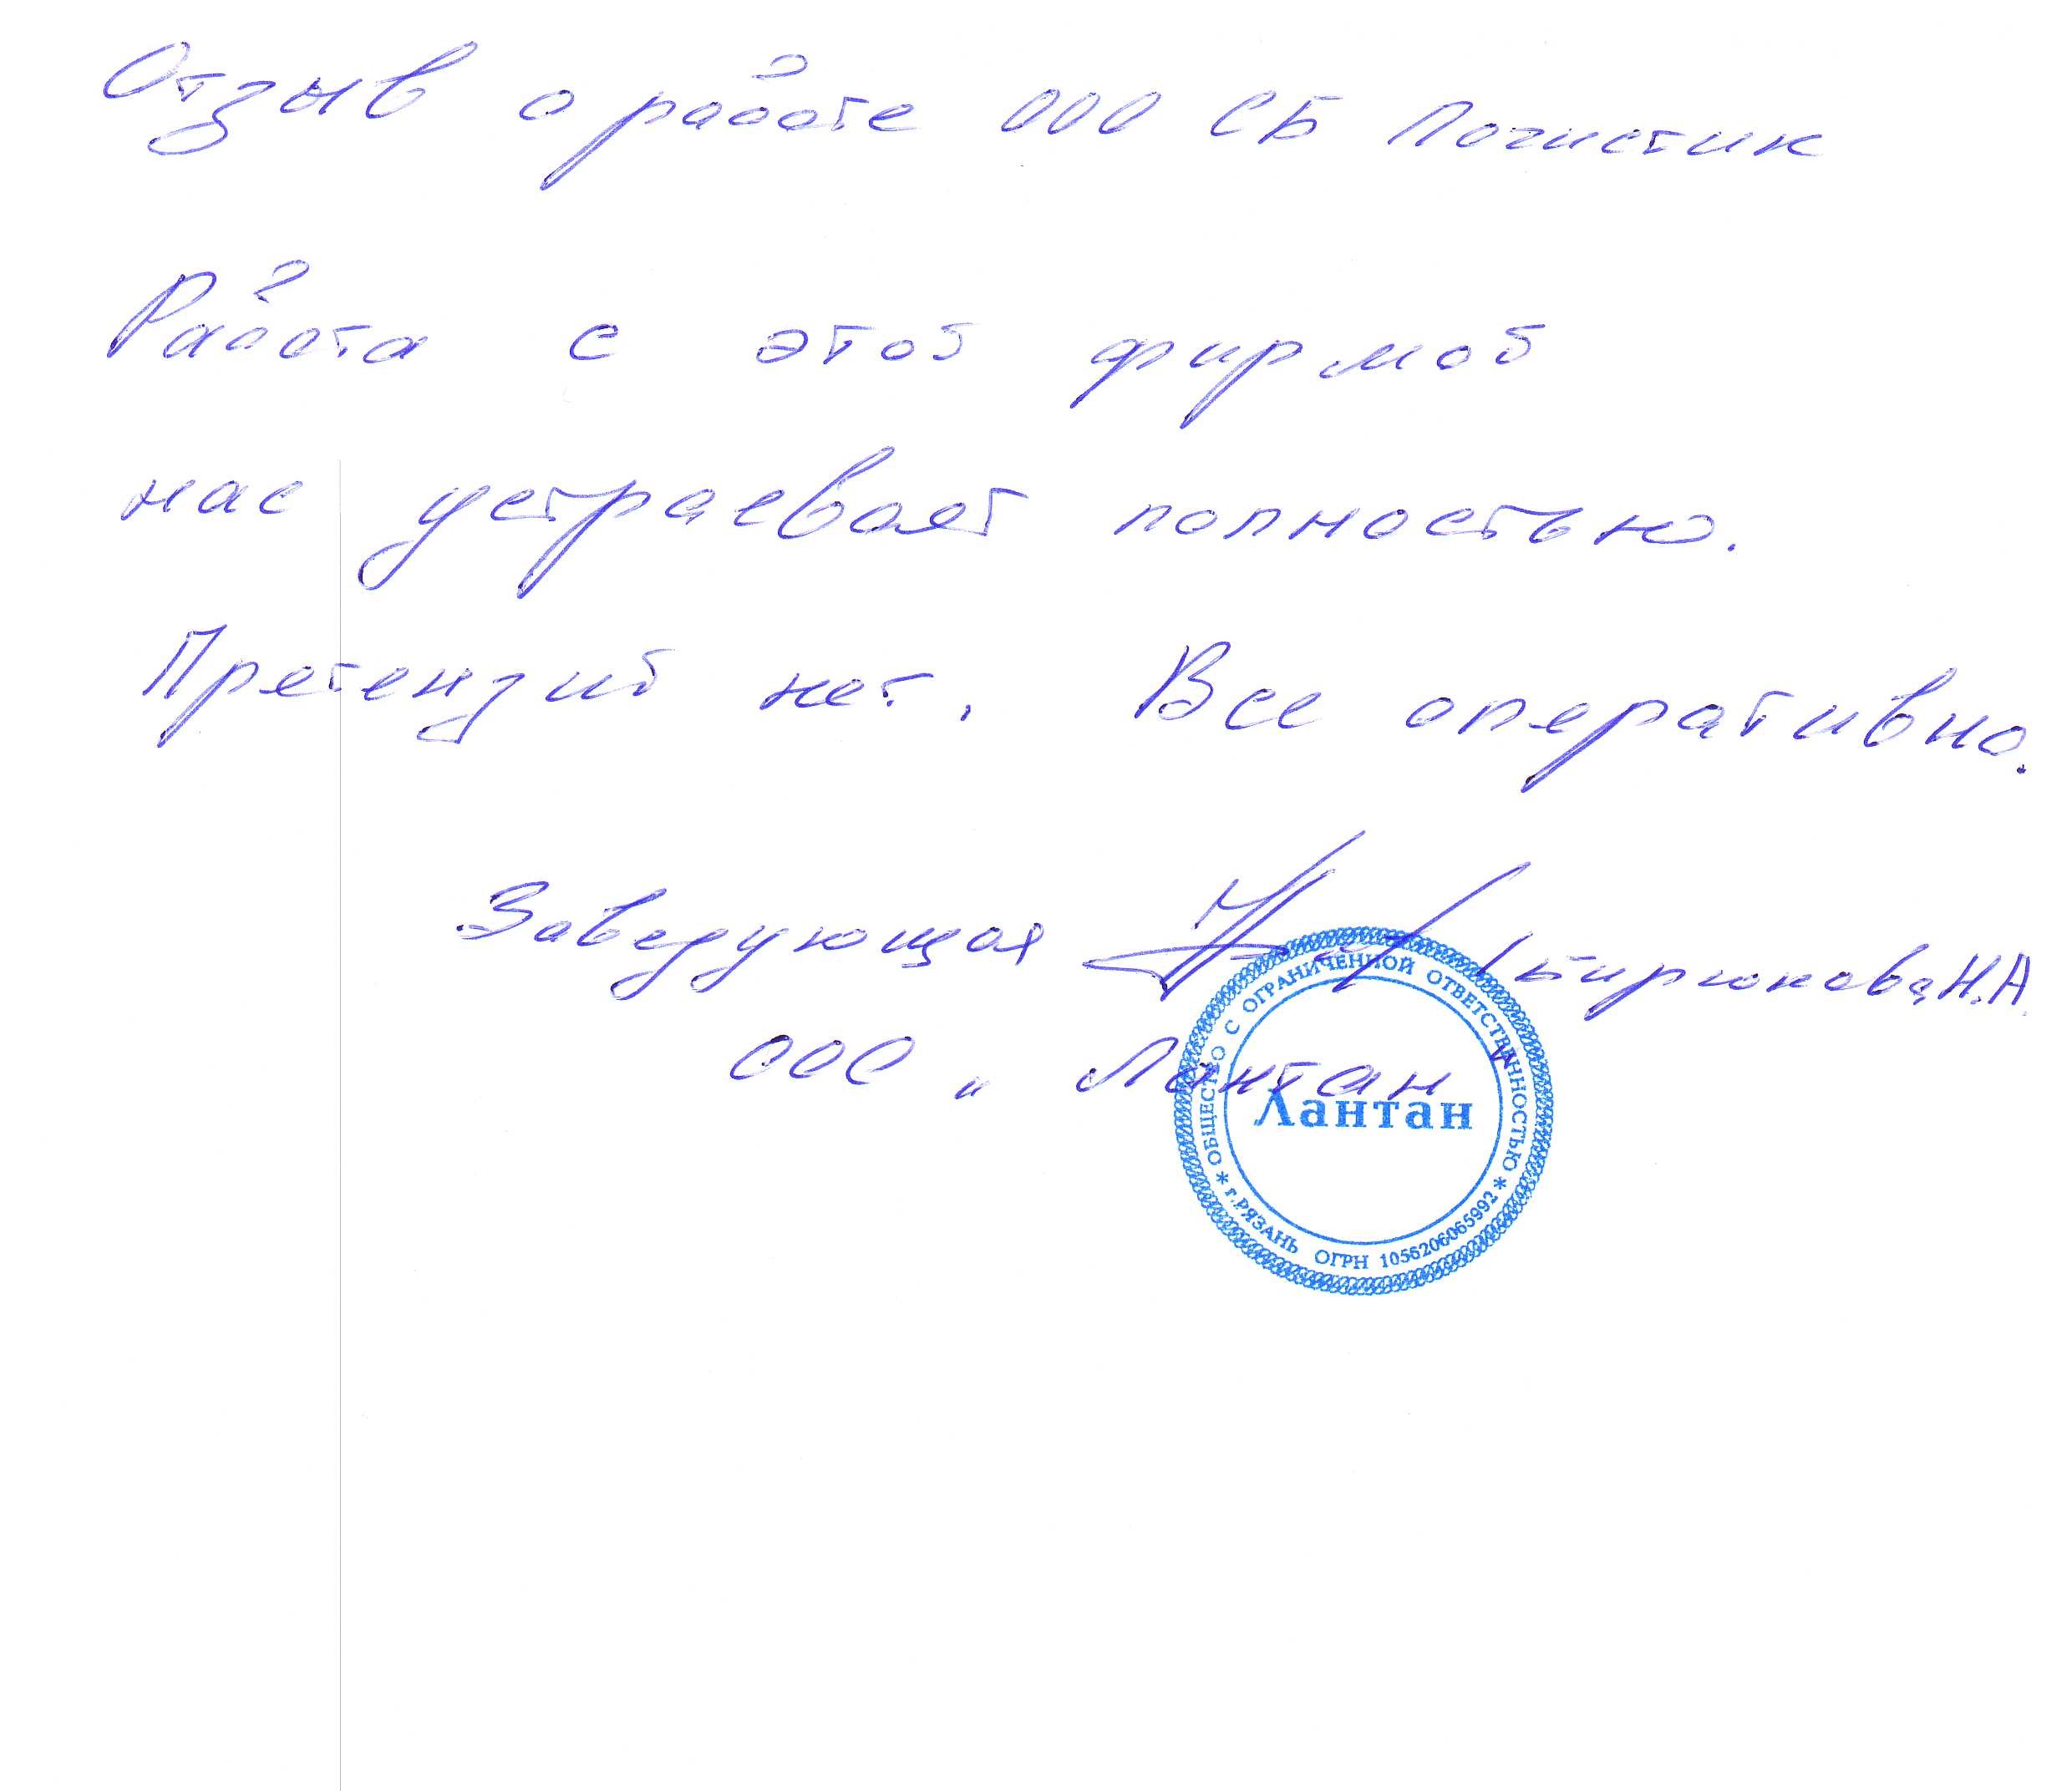 Отзыв о работе ООО СБ Логистик
Работа с этой фирмой
нас устраевает полностью.
Претензий нет. Все оперативно.
Заведующая Бирюкова Н.А.
ООО "Лантан"
ОБЩЕСТВО С ОГРАНИЧЕННОЙ ОТВЕТСТВЕННОСТЬЮ
Лантан
* г.РЯЗАНЬ ОГРН 1056206065992 *